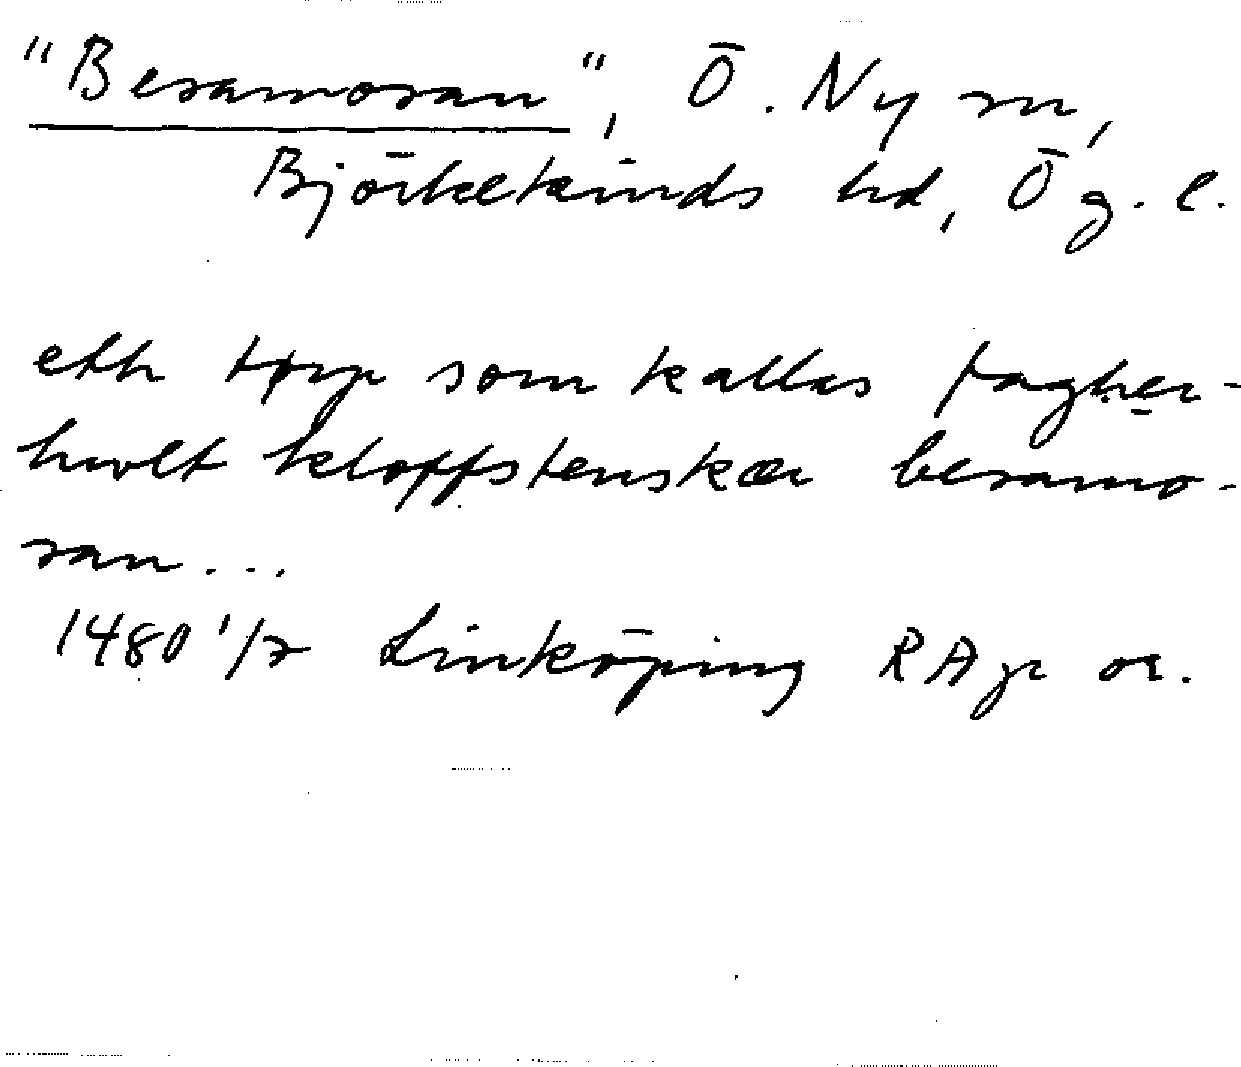 "Besamosan", Ö. Ny sn,
Björkekinds hd, Ög. l.
eth torp som kallas fagher-
hwlt kloffstenskær besamo-
san...
1480 1/2 Linköping RAp or.